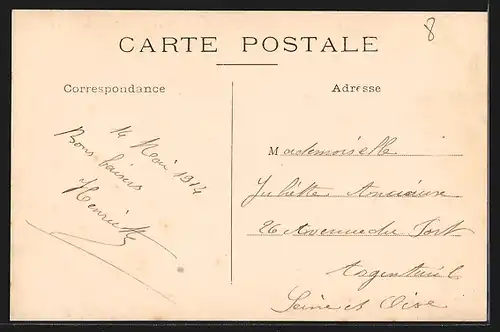 8
CARTE POSTALE
Correspondance
Adresse
14 Mai 1914
Bons baisers
Henriette
Mademoiselle
Juliette
26 Avenue du Fort
Argenteuil
Seine et Oise